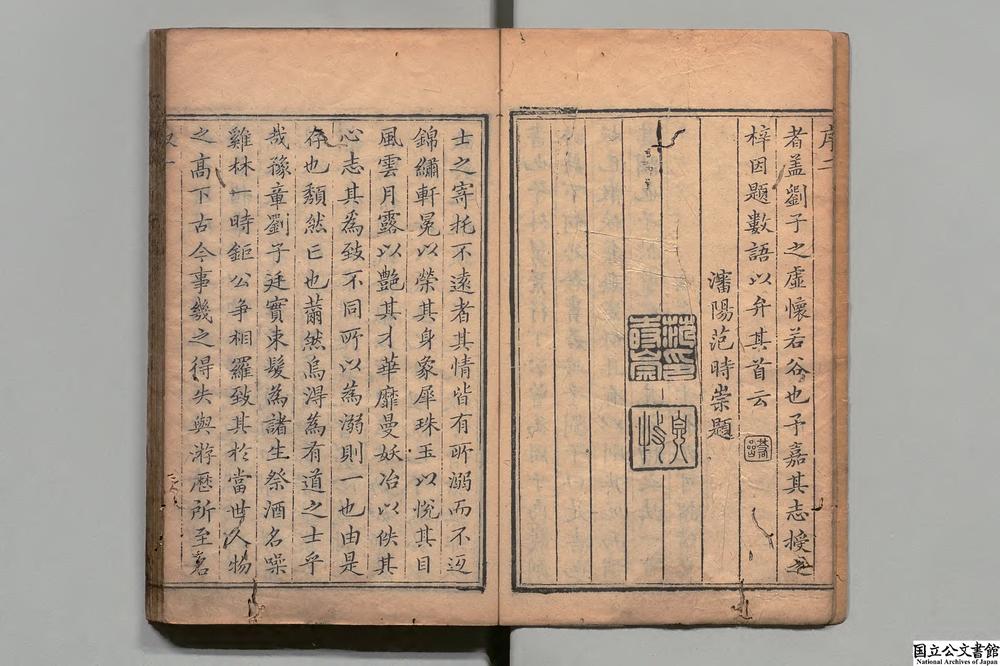 序二
者盖劉子之虛懷若谷也予嘉其志授之
梓因題數語以弁其首云
瀋陽范時崇題
范時崇印
士之寄托不遠者其情皆有所溺而不返
錦繡軒冕以榮其身象犀珠玉以悅其目
風雲月露以艷其才華靡曼妖冶以佚其
心志其為致不同所以為溺則一也由是
存也頹然亡也薾然烏淂為有道之士乎
哉豫章劉子廷實束髮為諸生祭酒名噪
雞林一時鉅公争相羅致其於當世人物
之高下古今事幾之得失與游歷所至名
国立公文書館
National Archives of Japan